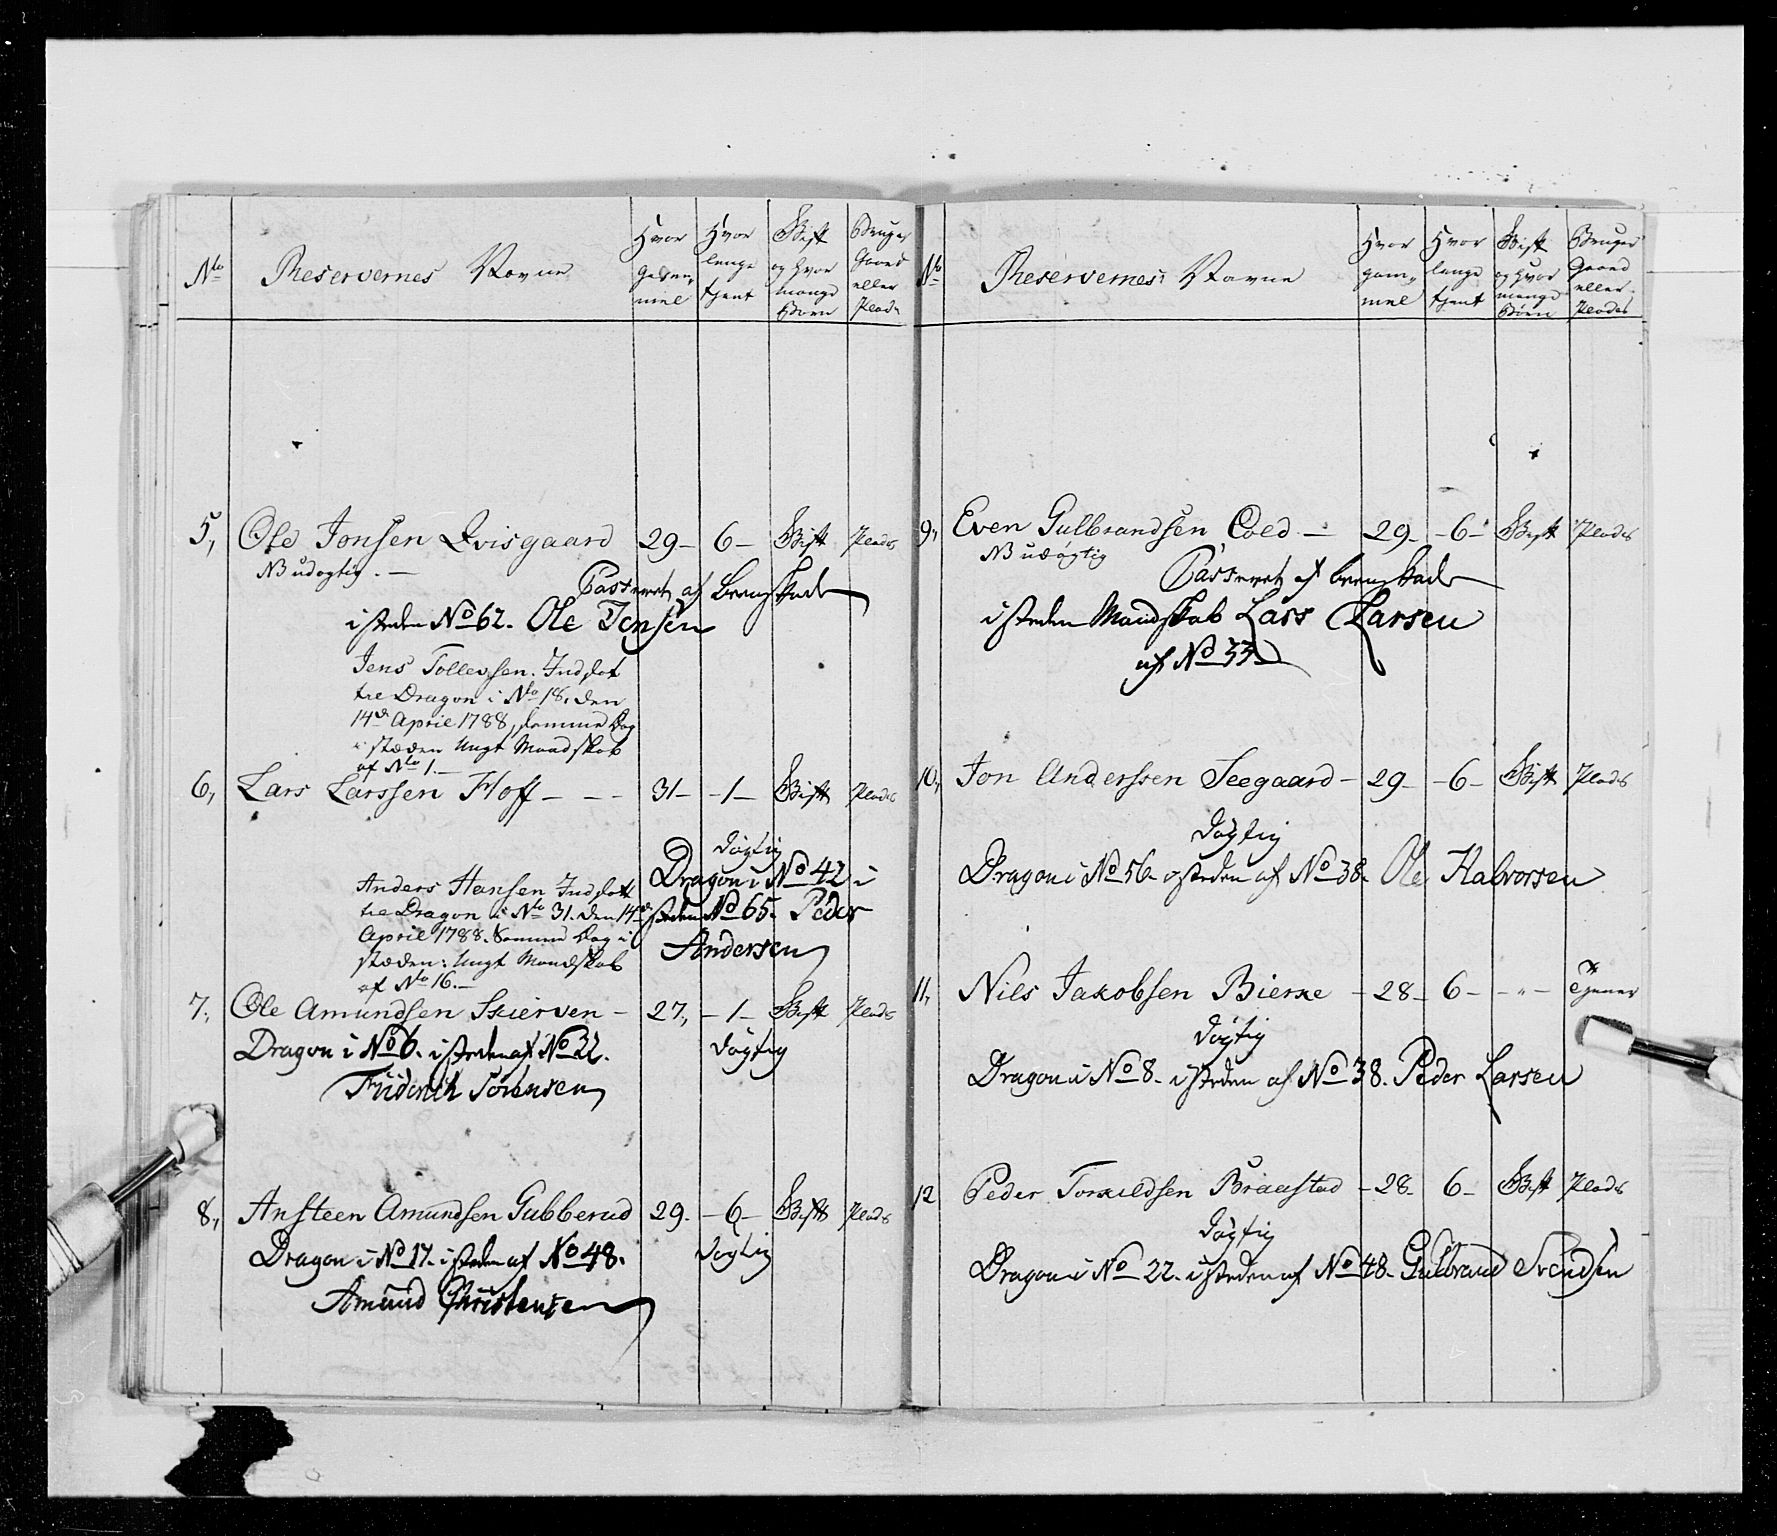 No
Reservernes Navne
Hvor
gam„
mel
Hvor
lenge
tjent
Gift
og hvor
mange
Børn
Bruger
Gaard
eller
Plads
5, Ole Jonsen Qvisgaard 29– 6– Gift Plads
NB udøgtig. —
Casseret af beenskade
isteden No 62. Ole Jensen
Jens Tollevsen. Indsat
tre Dragon i No 18. den
14de April 1788, samme Dag
i stæden Ungt Mandskab
af No 1.—
6, Lars Larssen Hoff – – – 31– –1– Gift Plads
døgtig
Dragon i No 42 i
steden No 65. Peder
Andersen
Anders Hansen Indsatt
tre Dragon i No 31. den 14de
April 1788. Samme Dag i
stæden: Ungt Mandskab
af No 16.—
7, Ole Amundsen Skierven – 27., –1– Gift Plads
Dragon i No 6. isteden af No 32. døgtig
Friderich Sørensen
8, Ansteen Amundsen Gubberud 29. –6– Gift Plads
Dragon i No 17. isteden af No 48. døgtig
Amund Christensen
No
Reservernes Navne
Hvor
gam„
mel
Hvor
lenge
tjent
Gift
og hvor
mange
Børn
Bruger
Gaard
eller
Plads
9, Even Gulbrandsen — 29– –6– Gift Plads
NB udøgtig
Casseret af beenskade
isteden Mandskab Lars Larsen
af No 33
10, Jon Anderssen Seegaard – 29– –6– Gift Plads
døgtig
Dragon i No 56. isteden af No 38. Ole Halvorsen
11, Nils Jakobsen Bierke – 28– 6– – „ – Tjener
døgtig
Dragon i No 8. isteden af No 38. Peder Larsen
12 Peder Torkildsen Braastad – 28– 6– Gift Plads
døgtig
Dragon i No 22. isteden af No 48. Gulbrand Svendsen